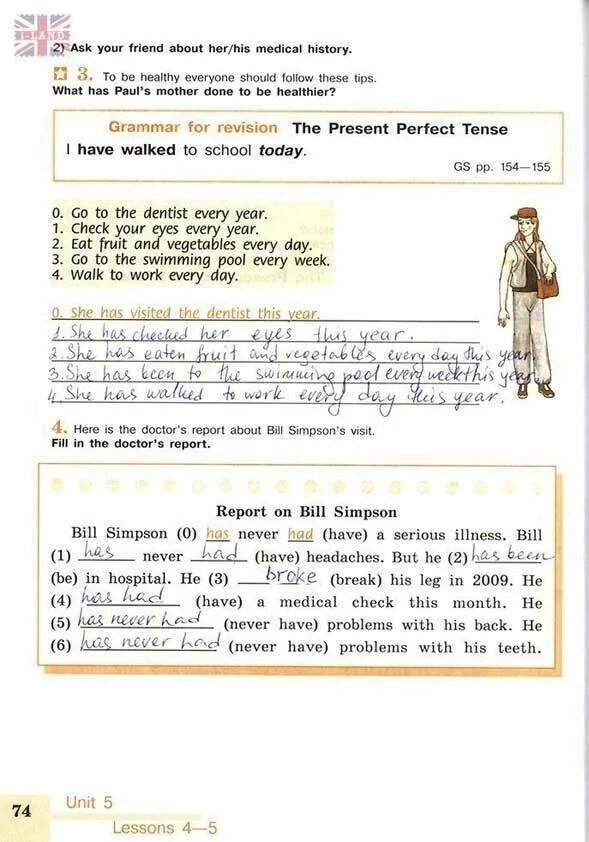 I-LAND
2) Ask your friend about her/his medical history.
3. To be healthy everyone should follow these tips.
What has Paul's mother done to be healthier?
Grammar for revision The Present Perfect Tense
I have walked to school today.
GS pp. 154—155
0. Go to the dentist every year.
1. Check your eyes every year.
2. Eat fruit and vegetables every day.
3. Go to the swimming pool every week.
4. Walk to work every day.
0. She has visited the dentist this year.
1. She has checked her eyes this year.
2. She has eaten fruit and vegetables every day this year
3. She has been to the swimming pool every week this year
4. She has walked to work every day this year.
4. Here is the doctor's report about Bill Simpson's visit.
Fill in the doctor's report.
Report on Bill Simpson
Bill Simpson (0) has never had (have) a serious illness. Bill
(1) has never had (have) headaches. But he (2) has been
(be) in hospital. He (3) broke (break) his leg in 2009. He
(4) has had (have) a medical check this month. He
(5) has never had (never have) problems with his back. He
(6) has never had (never have) problems with his teeth.
74
Unit 5
Lessons 4—5